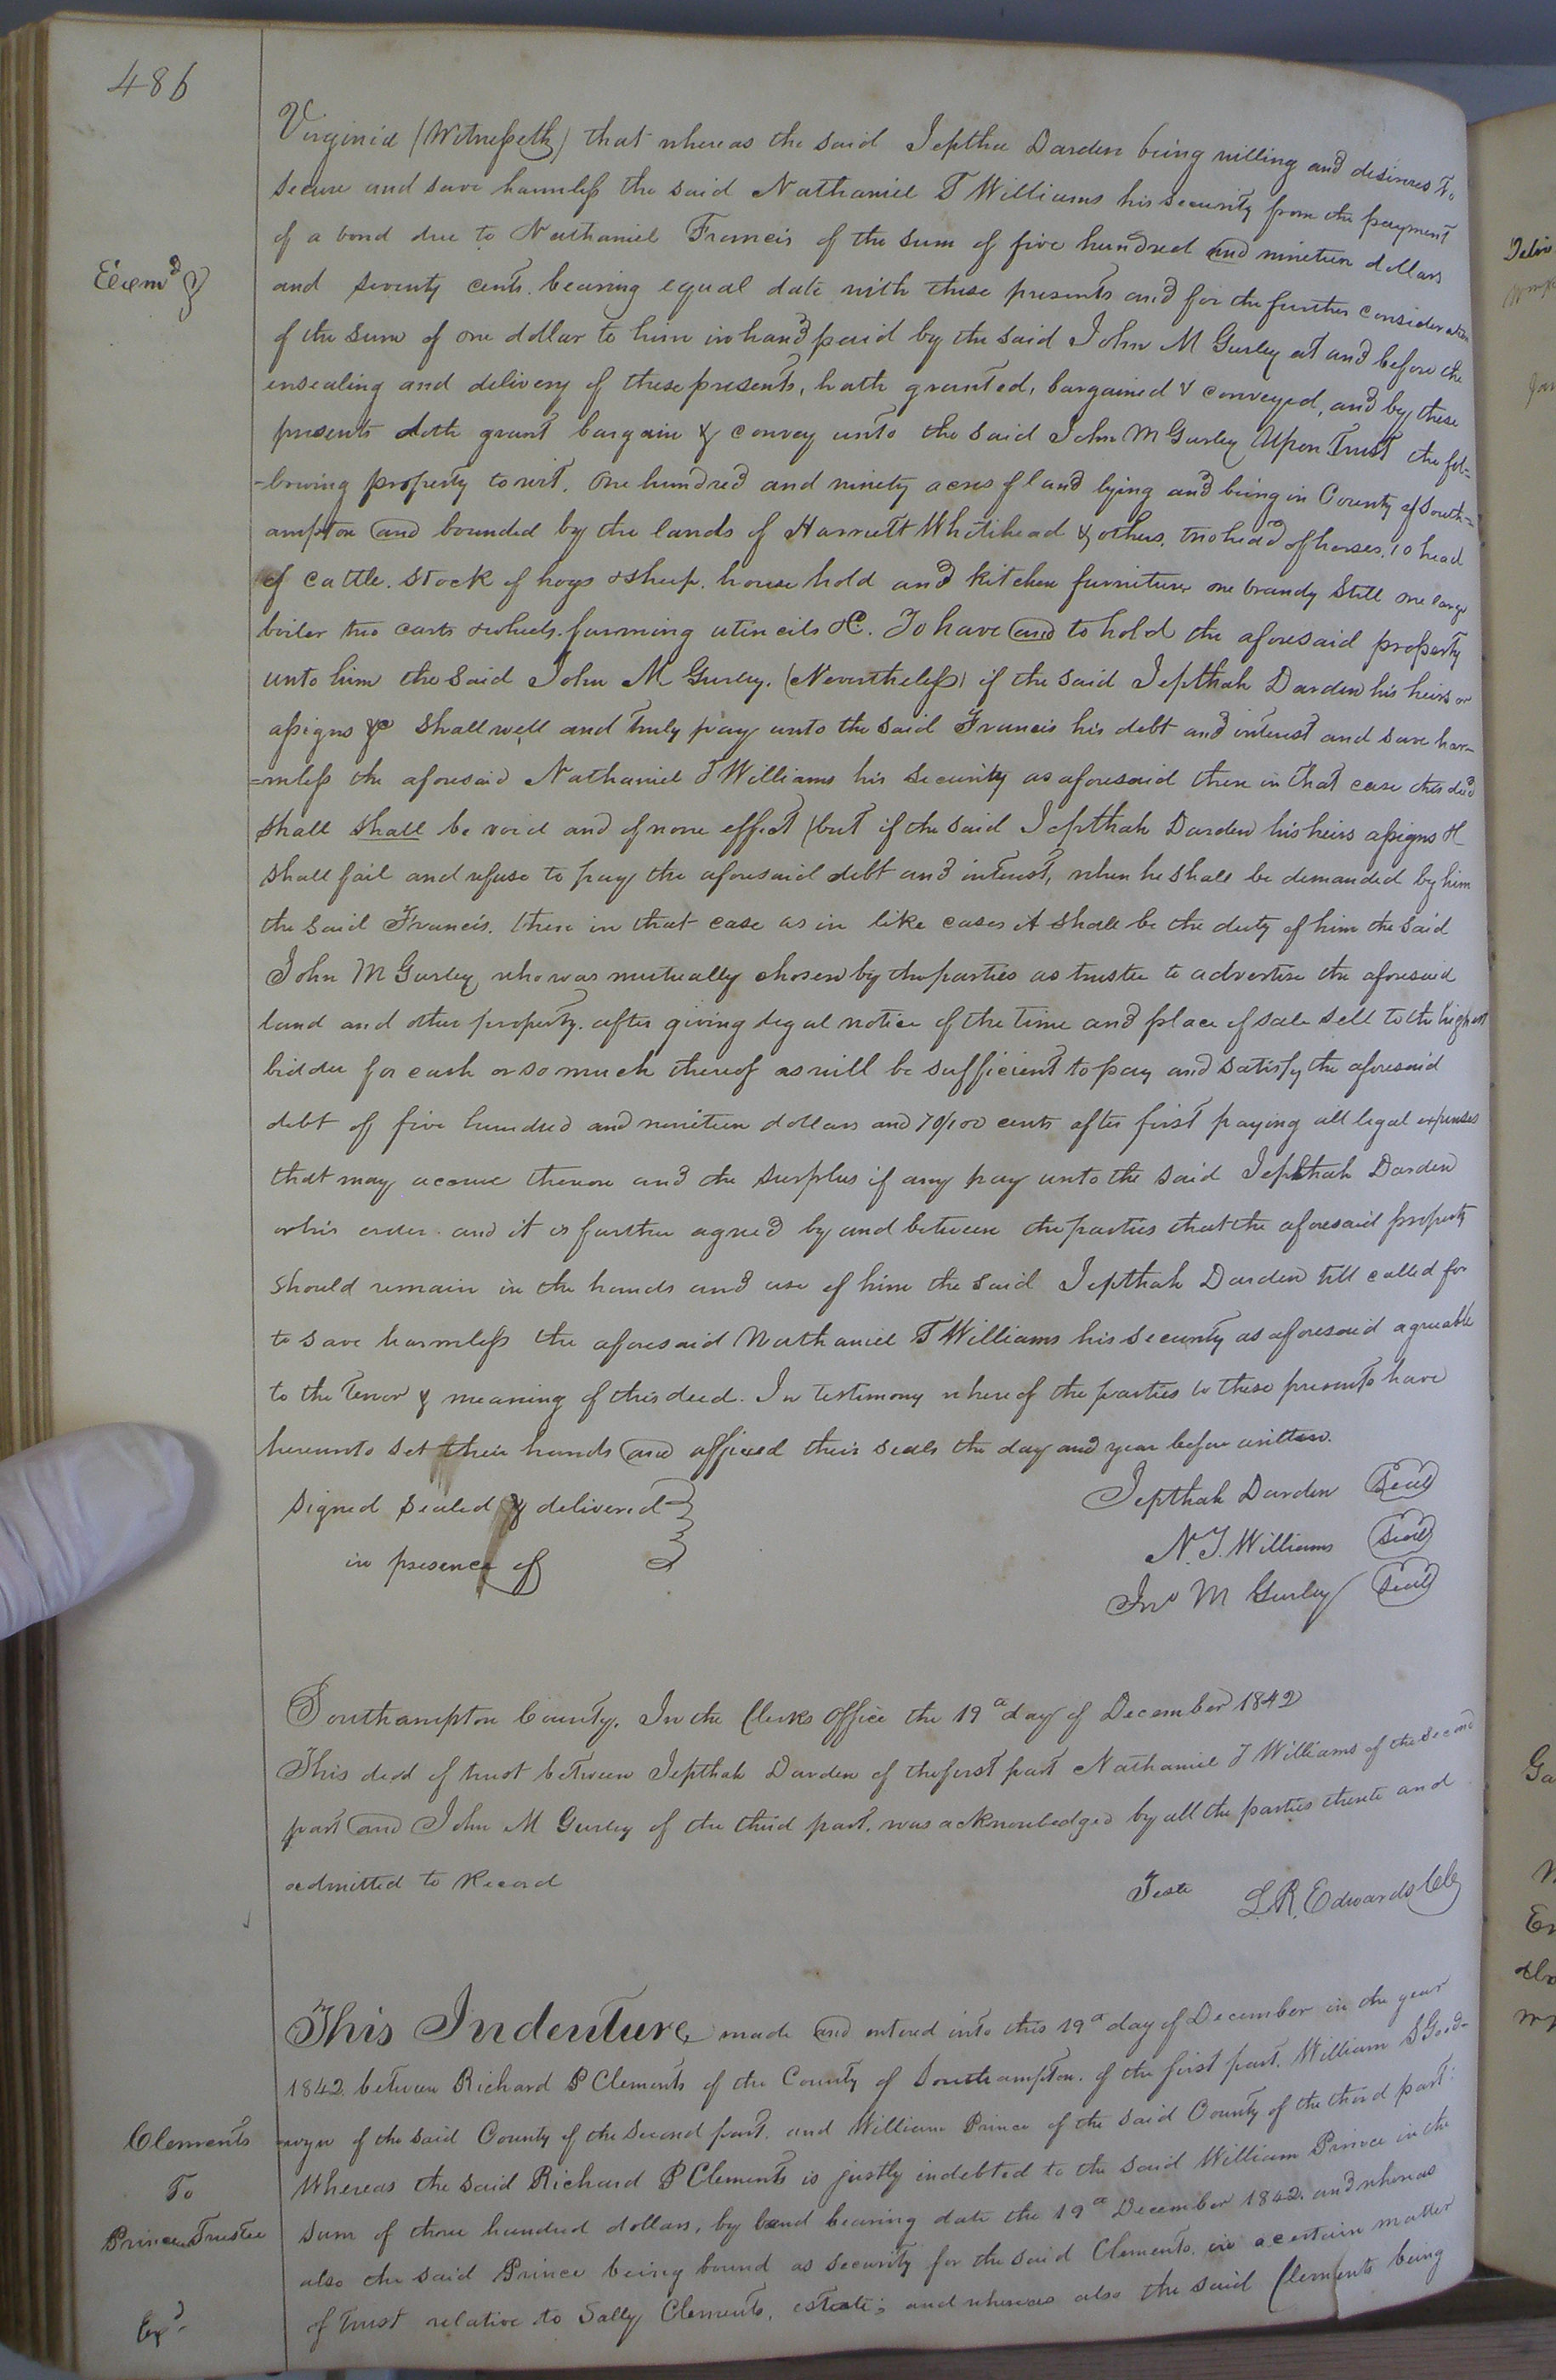 486
Virginia (Witnesseth) that whereas the said Jepthah Darden being willing and desirous to
secure and save harmless the said Nathaniel T Williams his security from the payment
of a bond due to Nathaniel Francis of the sum of five hundred and nineteen dollars
Exam^d &
and seventy cents. bearing equal date with these presents and for the further consideration
of the sum of one dollar to him in hand paid by the said John M Gurley at and before the
ensealing and delivery of these presents, hath granted, bargained & conveyed, and by these
presents doth grant bargain & convey unto the said John M Gurley Upon Trust the fol-
-lowing property to wit. One hundred and ninety acres of land lying and being in County of South=
ampton and bounded by the lands of Harriett Whitehead & others. two head of horses. 10 head
of cattle. stock of hogs & sheep. house hold and kitchen furniture one brandy still one large
boiler two carts & wheels. farming utencils &c. To have and to hold the aforesaid property
unto him the said John M Gurley. (Nevertheless) if the said Jepthah Darden his heirs or
assigns &c shall well and truly pay unto the said Francis his debt and interest and save har-
=mless the aforesaid Nathaniel T Williams his security as aforesaid then in that case this deed
shall shall be void and of none effect (but if the said Jepthah Darden his heirs assigns &
shall fail and refuse to pay the aforesaid debt and interest, when he shall be demanded by him
the said Francis. then in that case as in like cases it shall be the duty of him the said
John M Gurley who was mutually chosen by the parties as trustee to advertise the aforesaid
land and other property. after giving legal notice of the time and place of sale sell to the highest
bidder for cash or so much thereof as will be sufficient to pay and satisfy the aforesaid
debt of five hundred and nineteen dollars and 70/100 cents after first paying all legal expenses
that may accrue thereon and the surplus if any pay unto the said Jepthah Darden
or his order. and it is further agreed by and between the parties that the aforesaid property
should remain in the hands and use of him the said Jepthah Darden till called for
to save harmless the aforesaid Nathaniel T Williams his security as aforesaid agreeable
to the Tenor & meaning of this deed. In testimony whereof the parties to these presents have
hereunto set their hands and affixed their seals the day and year before written.
signed sealed & delivered
in presence of
Jepthah Darden Seal
N. T. Williams Seal
Jno M Gurley Seal
Southampton County. In the Clerks Office the 19^th day of December 1842
This deed of trust between Jepthah Darden of the first part Nathaniel T Williams of the second
part and John M Gurley of the third part. was acknowledged by all the parties thereto and
admitted to Record
Teste L. R. Edwards Clk
This Indenture made and entered into this 19^th day of December in the year
1842. between Richard P Clements of the County of Southampton. of the first part. William S Good-
Clements
To
Prince Trustee
Ex^d
-wyn of the said County of the second part. and William Prince of the said County of the third part:
Whereas the said Richard P Clements is justly indebted to the said William Prince in the
sum of three hundred dollars, by bond bearing date the 19^th December 1842. and whereas
also the said Prince being bound as security for the said Clements. in a certain matter
of trust relative to Sally Clements, estate; and whereas also the said Clements being